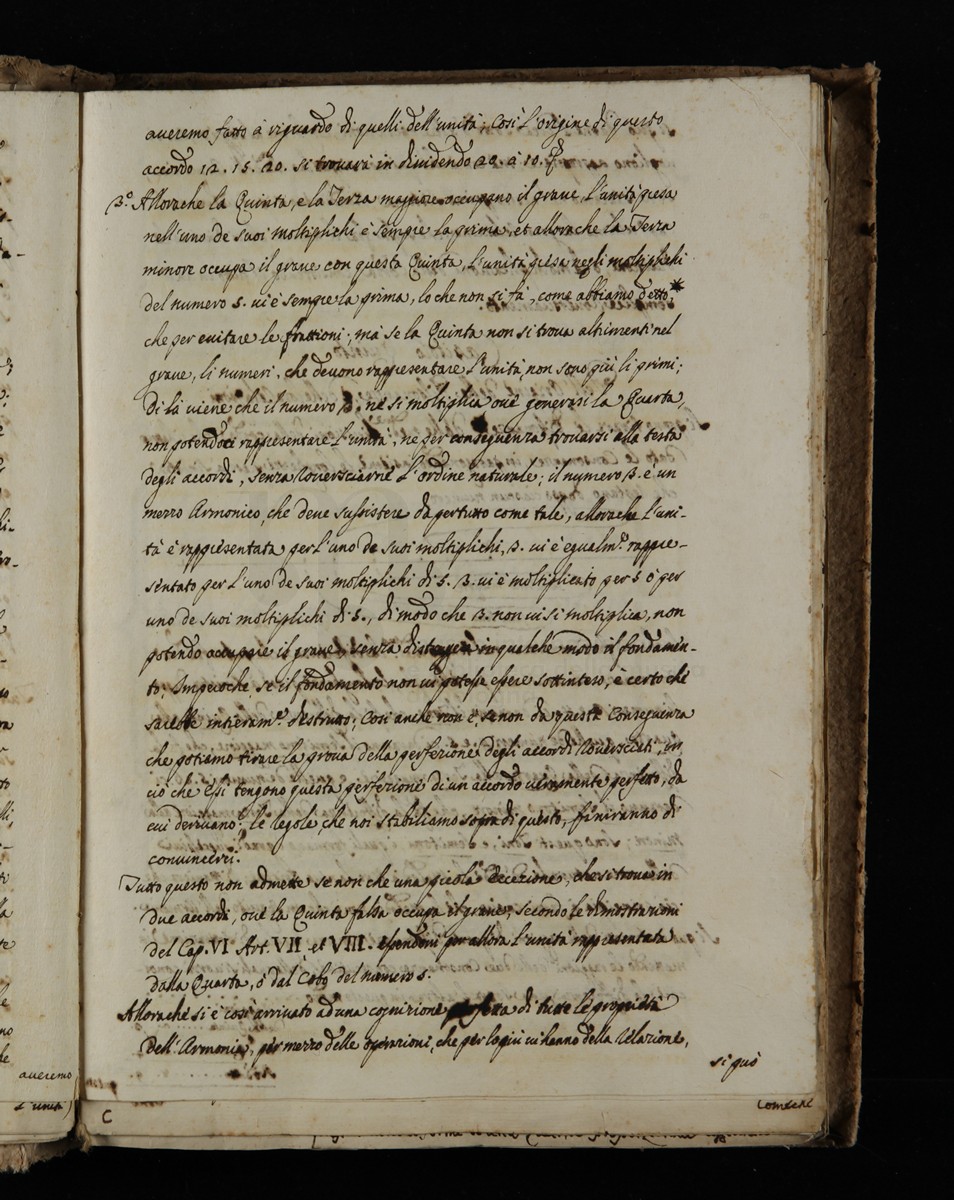 averemo fatto à riguardo di quelli dell'unità; Così l'origine di questo
accordo 12. 15. 20. si trovarà in dividendo 20. à 10.
3.° Allorache la Quinta, e la Terza maggiore occupano il grave, l'unità presa
nell'uno de suoi moltiplichi è sempre la prima, et allorache la Terza
minore occupa il grave con questa Quinta, l'unità presa negli moltiplichi
del numero 5. vi è sempre la prima, lo che non si fà, come abbiamo detto,*
che per evitare le frattioni; mà se la Quinta non si trova altrimenti nel
grave, li numeri, che devono rappresentare l'unità, non sono più li primi;
Di là viene che il numero 3. ne si moltiplica ovè generasi la Quarta,
non potendoci rappresentare l'unità, ne per conseguenza trovarsi alla testa
degli accordi, senza Roversciarne l'ordine naturale; il numero 3. è un
mezzo Armonico, che deve sussistere da pertutto come tale, allorache l'uni-
tà è rappresentata per l'uno de suoi moltiplichi, 3. vi è egualm.e rappre-
sentato per l'uno de suoi moltiplichi di 5. 3. vi è moltiplicato per 5 ò per
uno de suoi moltiplichi di 5., di modo che 3. non vi si moltiplica, non
potendo occupare il grave, senza distrugere in qualche modo il fondamen-
to; Imperoche se il fondamento non vi potesse essere sottinteso, è certo che
sarebbe intieram.e destrutto; Così anche non è, se non da questa Conseguenza
che potiamo tirare la prova della perfezione degli accordi Roversciati, in
ciò che essi tengono questa perfezione di un accordo veramente perfetto, da
cui derivano; le regole, che noi stabiliamo sopra di questo, finiranno di
convincervi.
Tutto questo non admette se non che una picola Eccezione, che si trova in
due accordi, ovè la Quinta falsa occupa il grave, secondo le dimostrazioni
del Cap. VI Art. VII, et VIII. essendovi per allora l'unità rappresentata
dalla Quarta, ò dal Cubo del numero 5.
Allorache si è così arrivato ad una cognizione perfetta di tutte le proprietà
dell'Armonia, per mezzo delle operazioni, che per lo più vi hanno della Relazione,
si può
averemo
l'unità
C